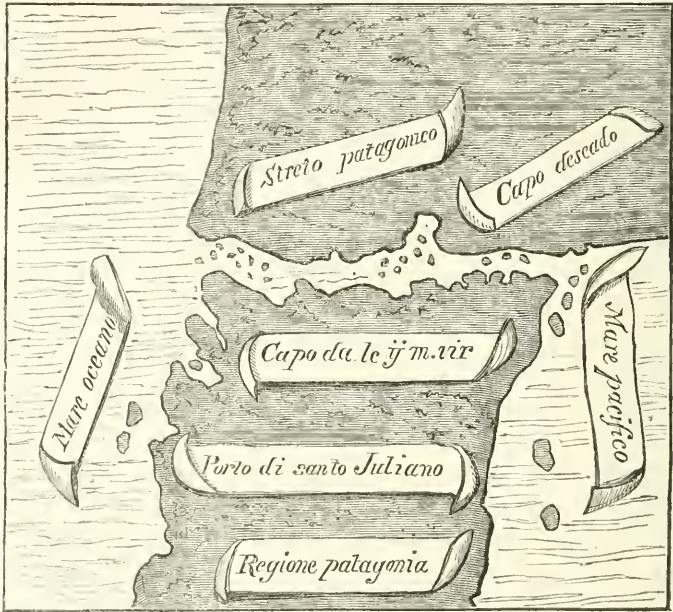 Streto patagonico
Capo deseado
Mare oceano
Capo da.le ij m.vir
Mare pacifico
Porto di santo Juliano
Regione patagonia